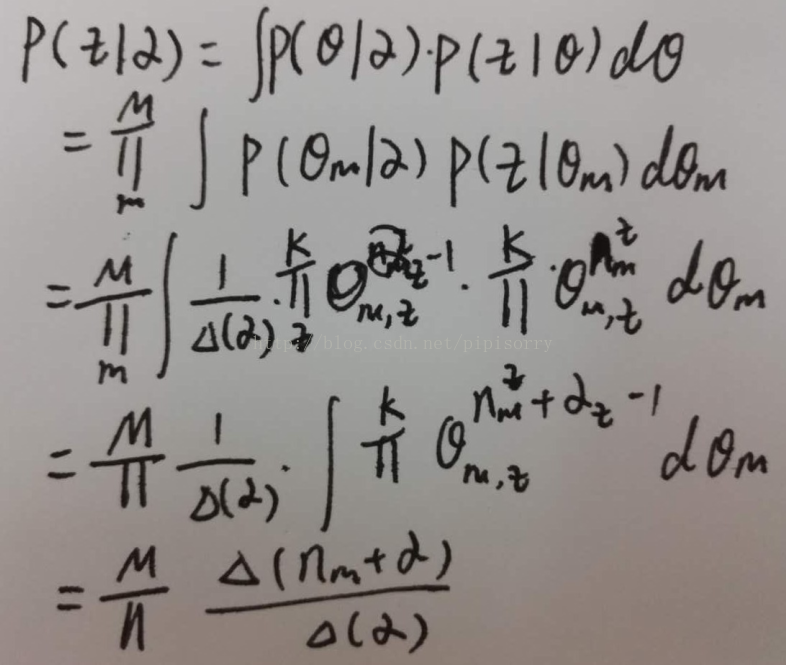 P(z|α) = ∫P(θ|α)·P(z|θ)dθ
= ∏_m^M ∫ P(θ_m|α) P(z|θ_m) dθ_m
= ∏_m^M ∫ 1/Δ(α) · ∏_z^K θ_{m,z}^{α_z-1} · ∏^K · θ_{m,z}^{n_m^z} dθ_m
http://blog.csdn.net/pipisorry
= ∏^M 1/Δ(α) · ∫ ∏^K θ_{m,z}^{n_m^z+α_z-1} dθ_m
= ∏^M Δ(n_m+α)/Δ(α)